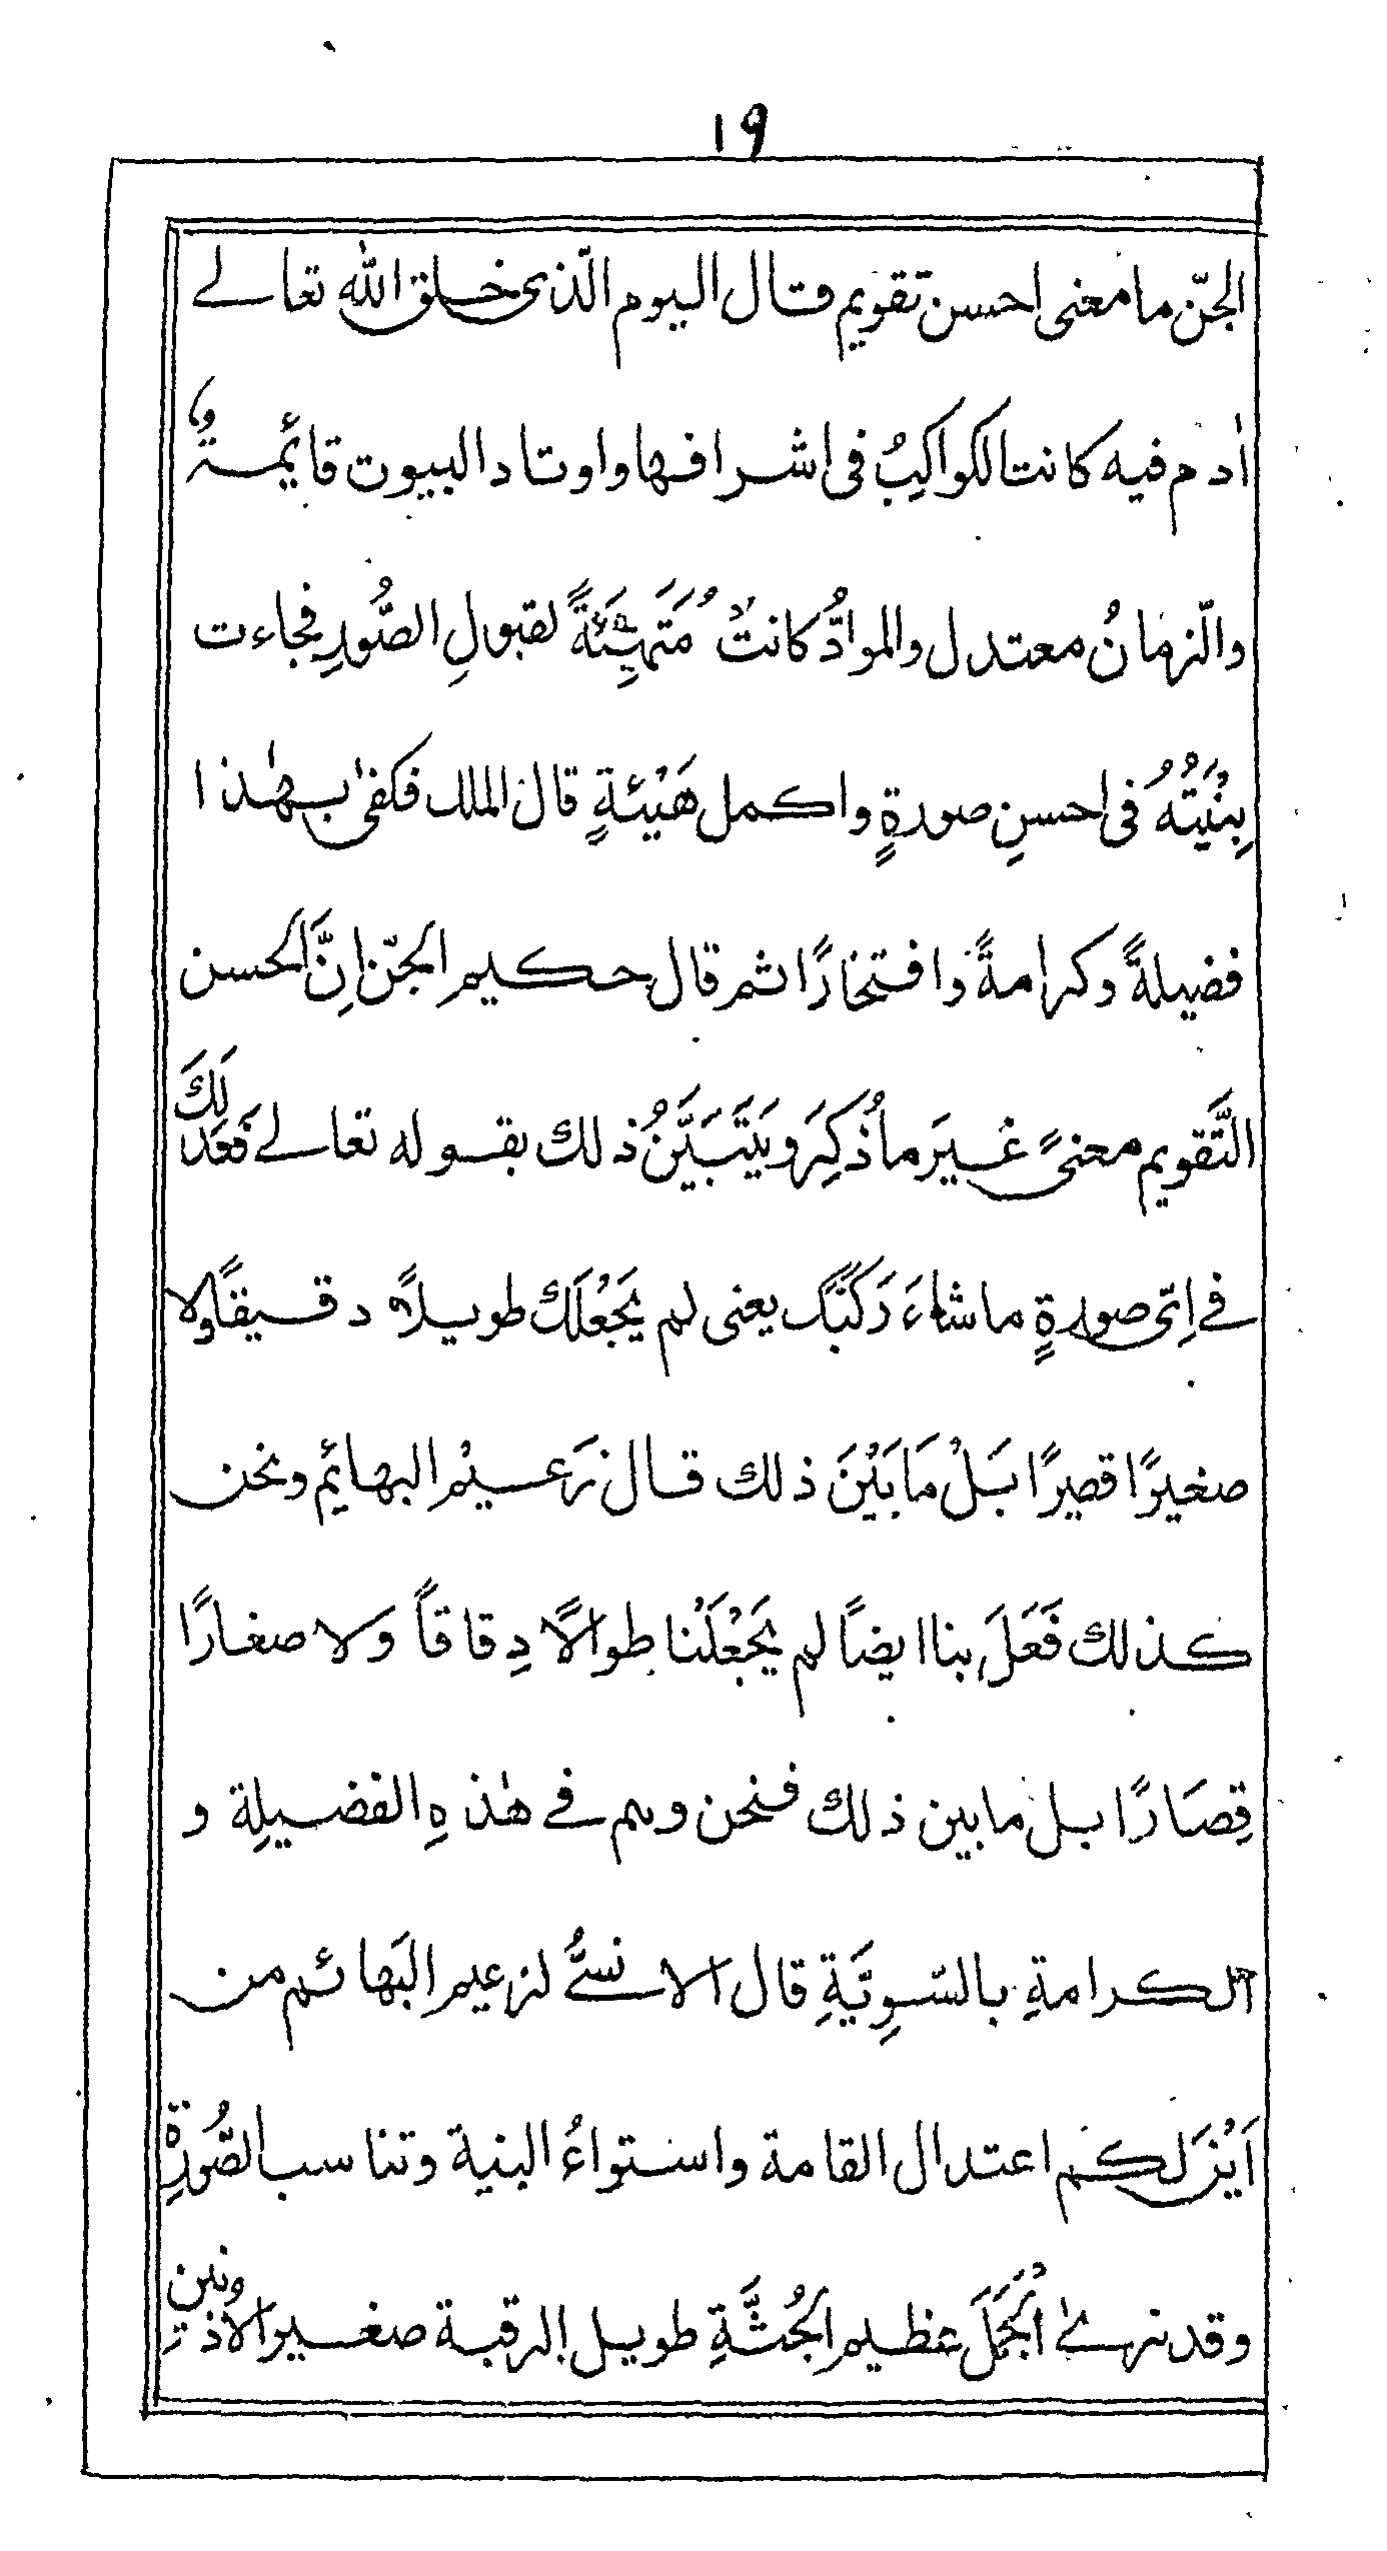 ١٩
الجنّ ما معنى احسن تقويم قال اليوم الّذى خلق الله تعالے
اٰدم فيه كانت الكواكبُ فى اشرافها واوتاد البيوت قائمةٌ
والّزمانُ معتدل والموادُّ كانتْ مُتَهَيِّئَةً لقبولِ الصُّورِ فجاءت
بِنْيَتُهُ فى احسنِ صورةٍ واكمل هَيْئةٍ قال الملك فكفىٰ بهٰذا
فضيلةً وكرامةً وافتخارًا ثم قال حكيم الجنّ اِنَّ لحسن
التَّقويم معنىً غيرَ ما ذُكِرَ ويَتَبَيَّنُ ذلك بقوله تعالے فَعَدَلَكَ
فے اِىّ صورةٍ ما شاءَ رَكَّبَك يعنى لم يَجْعَلَك طويلاً دقيقاً ولا
صغيرًا قصيرًا بَلْ مَا بَيْنَ ذلك قال زَعيْم البهائم ونحن
كذلك فَعَلَ بنا ايضاً لم يَجْعَلْنا طوالًا دِقاقاً وَلا صغارًا
قِصَارًا بل ما بين ذلك فنحن وهم فے هٰذهِ الفضيلةِ و
الكرامةِ بالسّوِيَّةِ قال الانسىُّ لزعيم البَهائم من
اَيْنَ لكم اعتدال القامة واستواءُ البنية وتناسب الصُّورةِ
وقد نرىٰ الجَمَلَ عظيم الجُثَّةِ طويل الرقبة صغير الاذنين